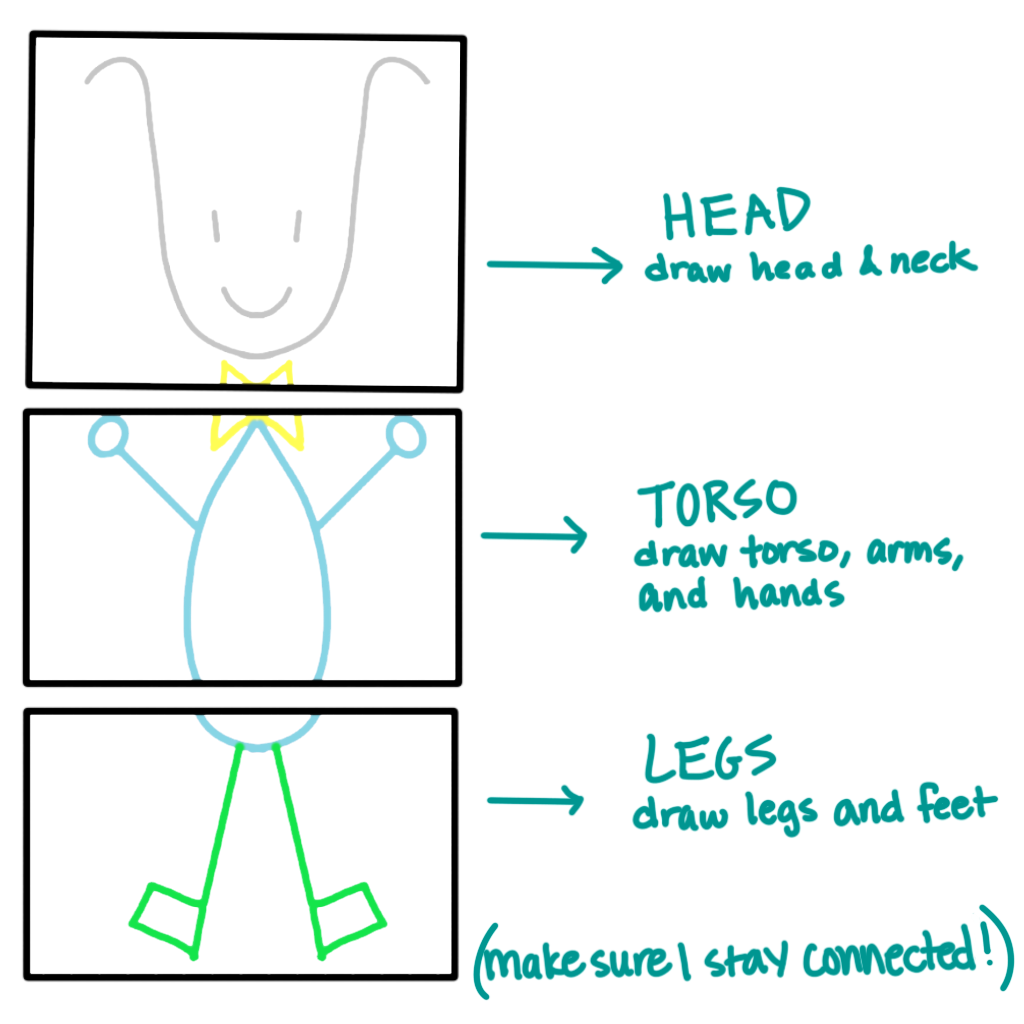 HEAD
draw head & neck
TORSO
draw torso, arms,
and hands
LEGS
draw legs and feet
(make sure I stay connected!)